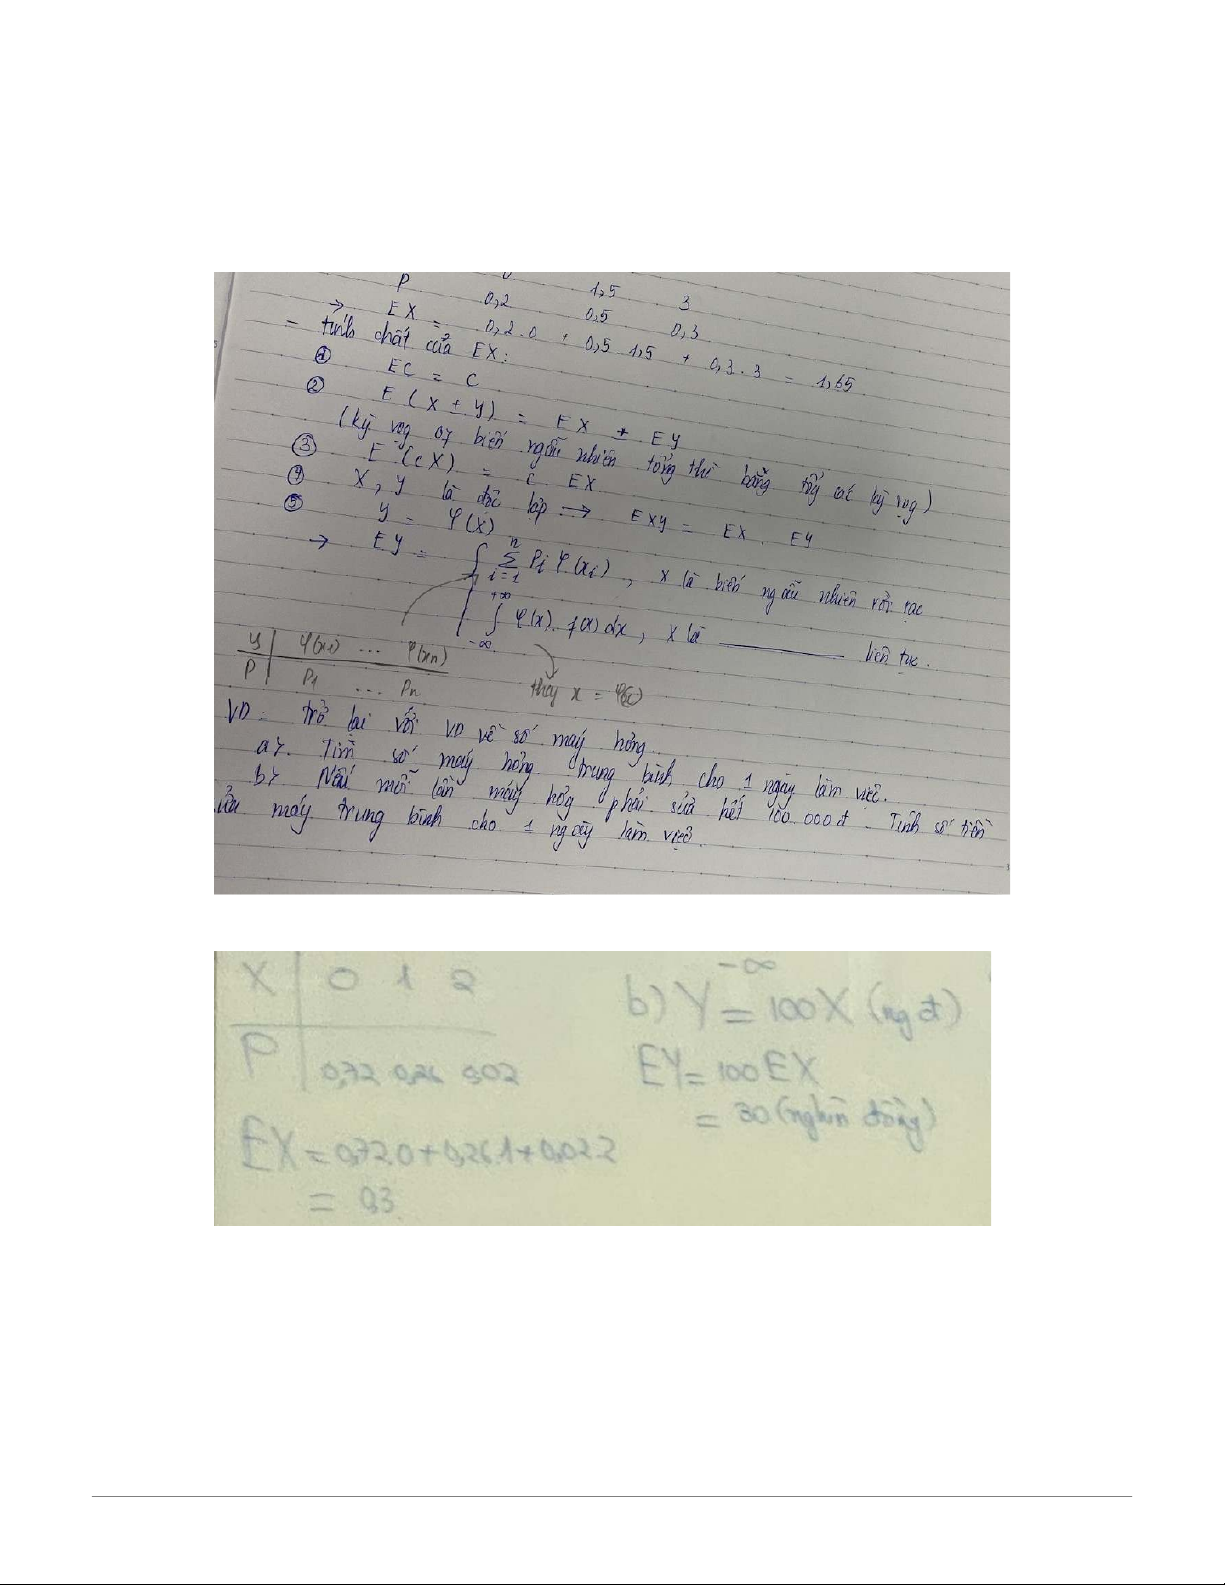 P 1,5 3
→ EX = 0,2 0,5 0,3
0,2.0 + 0,5 1,5 + 0,3.3 = 1,65
- tính chất của EX:
① EC = C
② E(X ± Y) = EX ± EY
(kỳ vọg of biến ngẫu nhiên tổng thì bằng tổg các kỳ vọg)
③ E(cX) = c EX
④ X, Y là độc lập → EXY = EX. EY
⑤ Y = φ(X)
→ EY = { n Σ i=1 Pi φ(xi), X là biến ngẫu nhiên rời rạc
+∞ ∫ -∞ φ(x). f(x) dx, X là ________ liên tục.
Y | φ(x1) ... φ(xn)
P | P1 ... Pn
thay x = φ(x)
VD: Trở lại với VD về số máy hỏng.
a>. Tìm số máy hỏng trung bình cho 1 ngày làm việc.
b> Nếu mỗi lần máy hỏg phải sửa hết 100.000đ. Tính số tiền
sửa máy trung bình cho 1 ngày làm việc.
X | 0 1 2
P | 0,72 0,26 0,02
EX = 0,72.0 + 0,26.1 + 0,02.2
= 0,3
-∞
b) Y = 100X (ng đ)
EY = 100EX
= 30 (nghìn đồng)